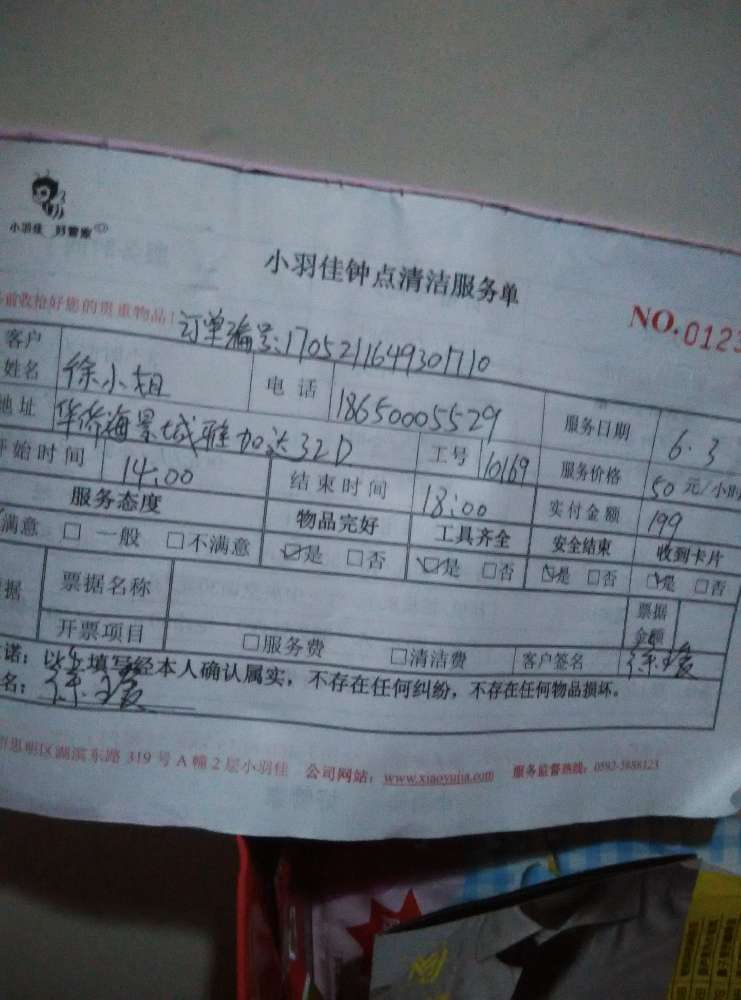 小羽佳 好管家
小羽佳钟点清洁服务单
前收检好您的贵重物品！ NO.0123
订单编号:170521164930710
客户姓名 徐小姐 电话 18650005529 服务日期 6.3
地址 华侨海景城雅加达32D 工号 10169 服务价格 50元/小时
开始时间 14:00 结束时间 18:00 实付金额 199
服务态度 物品完好 工具齐全 安全结束 收到卡片
满意 □一般 □不满意 ☑是 □否 ☑是 □否 ☑是 □否 ☑是 □否
据 票据名称 票据金额
开票项目 □服务费 □清洁费 客户签名
诺：以上填写经本人确认属实，不存在任何纠纷，不存在任何物品损坏。
名：
市思明区湖滨东路319号A幢2层小羽佳 公司网站：www.xiaoyujia.com 服务监督热线：0592-5888123